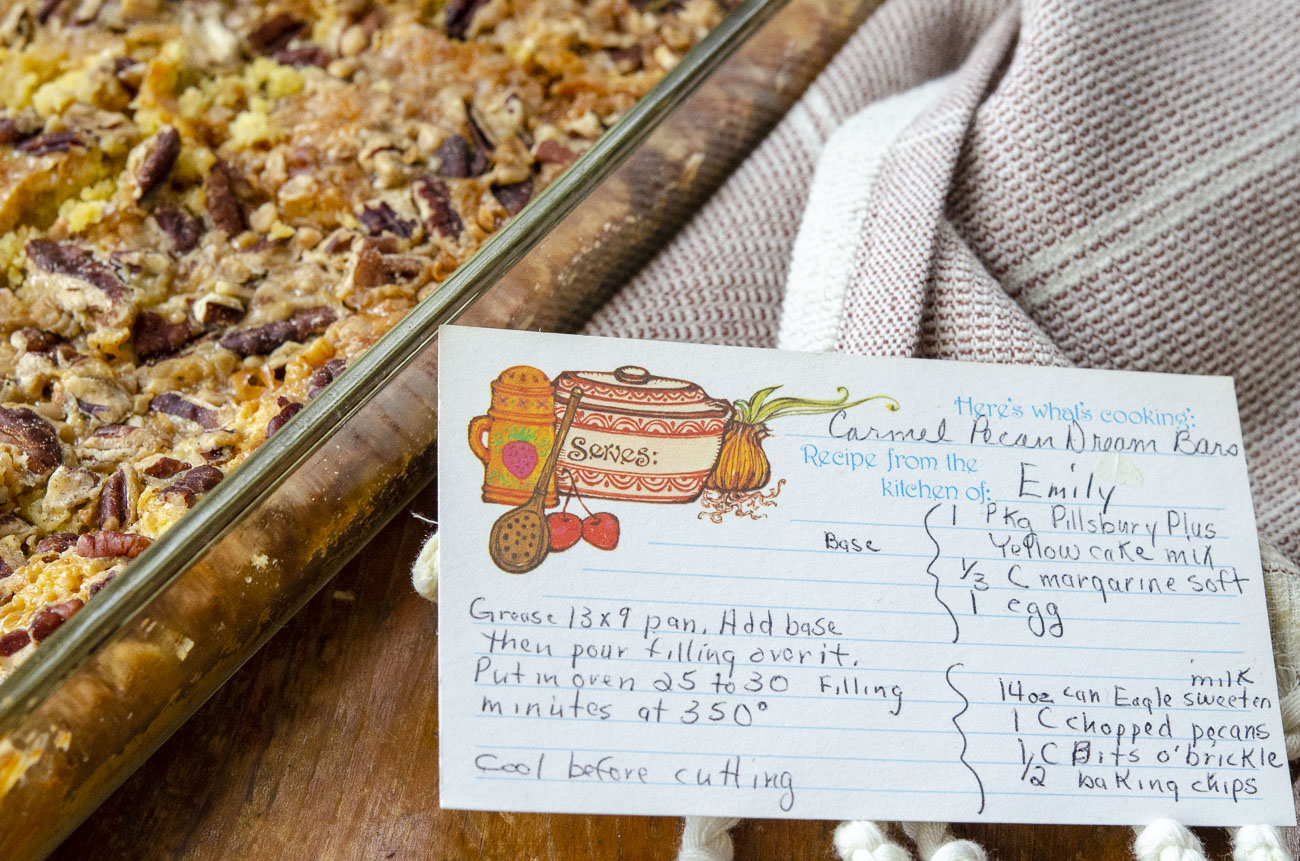 Serves:
Here's what's cooking:
Carmel Pecan Dream Bars
Recipe from the
kitchen of: Emily
Base
1 Pkg Pillsbury Plus
Yellow cake mix
1/3 C margarine soft
1 egg
Grease 13x9 pan. Add base
then pour filling over it.
Put in oven 25 to 30
minutes at 350°
Cool before cutting
Filling
milk
14oz can Eagle sweeten
1 C chopped pecans
1/2 C Bits o'brickle
baking chips